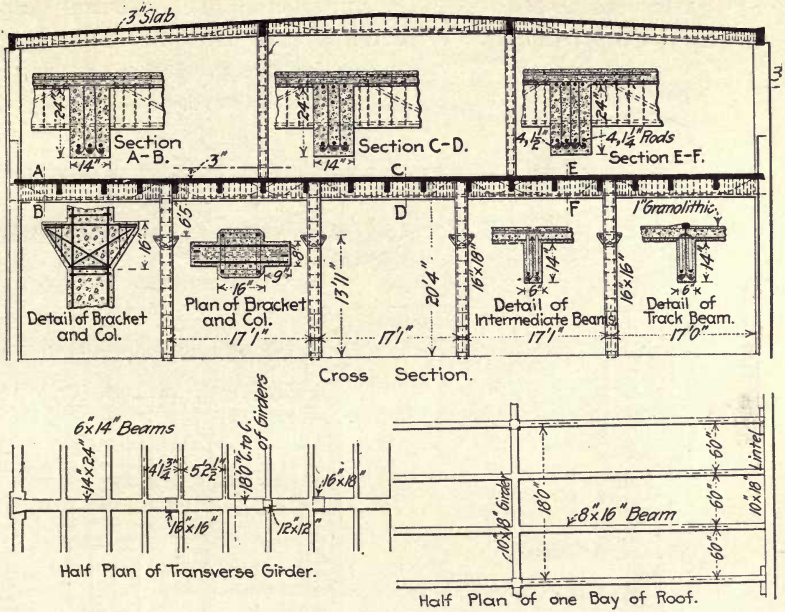 3" Slab
24"
14"
Section
A-B.
24"
14"
Section C-D.
24"
4, 1/2"
4, 1 1/4" Rods
Section E-F.
3"
A
C
E
B
D
F
1" Granolithic
6'5"
16"
Detail of Bracket
and Col.
8"
9"
16"
Plan of Bracket
and Col.
13'11"
20'4"
16"x18"
14"
6"
Detail of
Intermediate Beams
16"x16"
14"
6"
Detail of
Track Beam.
17'1"
17'1"
17'1"
17'0"
Cross Section.
6"x14" Beams
14"x24"
4'1 3/4"
5'2 1/2"
18'0" C. to C.
of Girders
16"x18"
16"x16"
12"x12"
Half Plan of Transverse Girder.
10"x18" Girder
18'0"
8"x16" Beam
6'0"
6'0"
6'0"
10"x18" Lintel
Half Plan of one Bay of Roof.